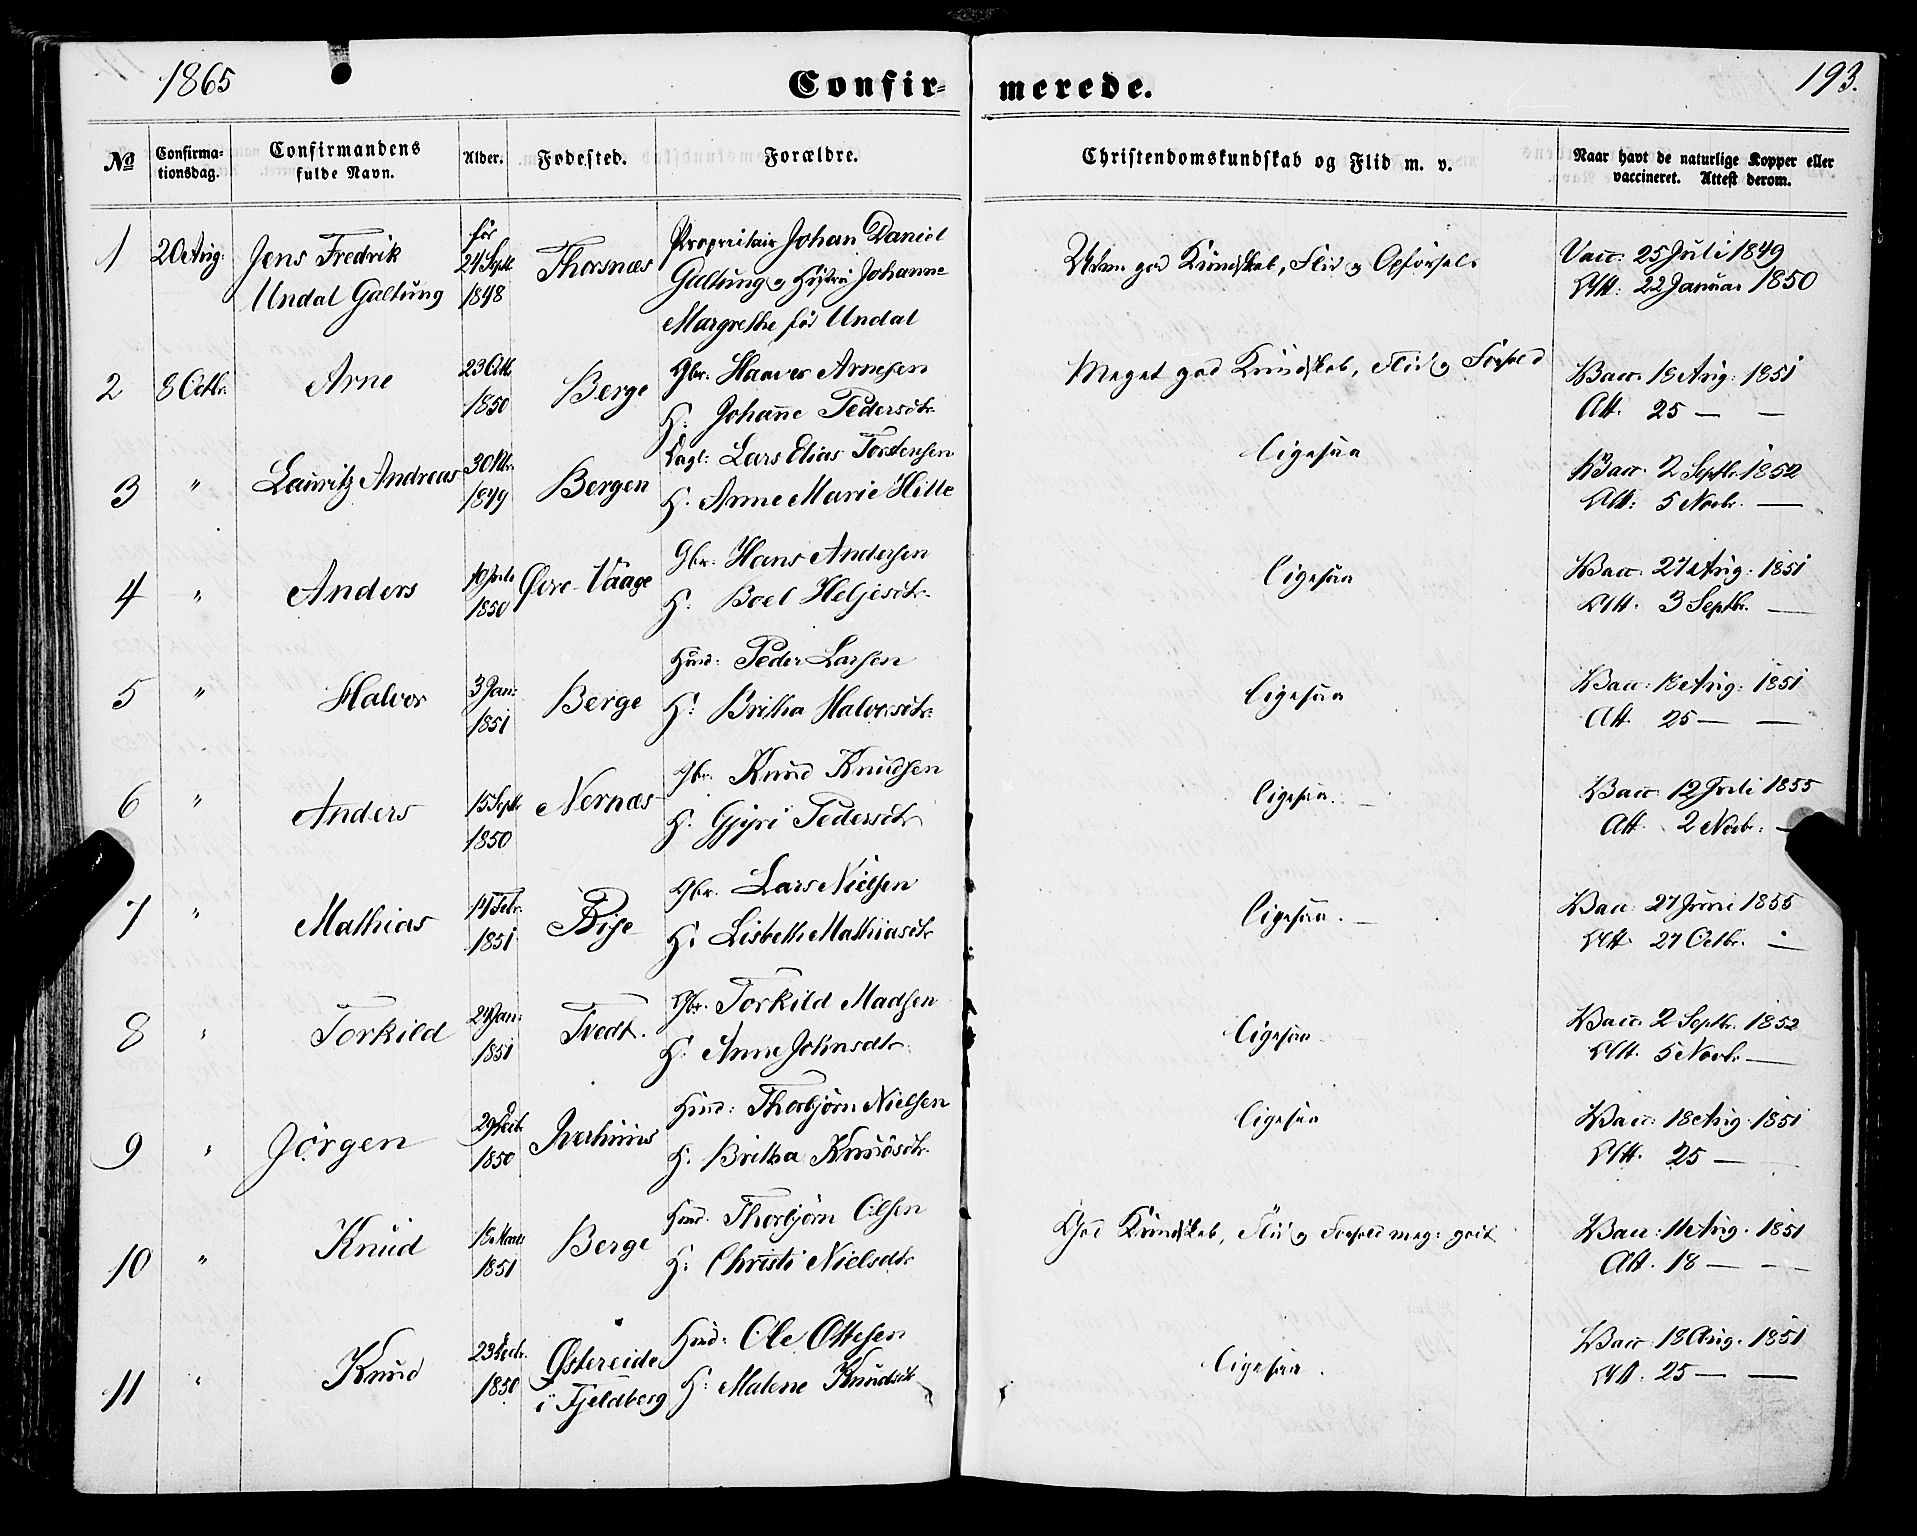 1865
Confirmerede.
193.
No
Confirmationsdag.
Confirmandens fulde Navn.
Alder.
Fødested.
Forældre.
Christendomskundskab og Flid m. v.
Naar havt de naturlige Kopper eller vaccineret. Attest derom.
1 20 Aug. Jens Fredrik Undal Galtung
24 Sept. 1848
Thorsnæs
Proprietair Johan Daniel
Galtung og Hustru Johanne
Margrethe Undal
god Kundskab, Flid og Opførsel.
Vacc: 25 Juli 1849
Att: 22 Januar 1850
2 8 Octbr. Arne
23 Octb. 1850
Berge
Gbr. Haaver Arnesen
H. Johanne Pedersdtr.
Meget god Kundskab, Flid og Forhold
Vacc. 18 Aug: 1851
Att. 25 — —
3 " Lauritz Andreas
1849
Bergen
Lars Elias Torstensen
H. Anne Marie Hille
ligesaa
Vacc. 2 Septbr. 1852
Att: 5 Novbr. —
4 " Anders
1850
Øvre-Vaage
Gbr. Hans Andersen
H. Boel Heljesdtr.
ligesaa
Vacc. 27 Aug. 1851
Att. 3 Septbr. —
5 " Halvor
3 Jan: 1851
Berge
Huusm: Peder Larsen
H. Britha Halvorsdtr.
ligesaa
Vacc: 18 Aug: 1851
Att. 25 — —
6 " Anders
15 Septb. 1850
Nernæs
Gbr. Knud Knudsen
H. Gjyri Pedersdtr
ligesaa. —
Vacc. 12 Juli 1855
Att. 2 Novbr: —
7 " Mathias
14 Febr. 1851
Gbr. Lars Nielsen
H. Lisbeth Mathiasdtr
ligesaa. —
Vacc. 27 Juni 1855
Att. 27 Octbr. —
8 " Torkild
24 Jan: 1851
Tvedt.
Gbr. Torkild Madsen
H. Anne Johnsdtr.
ligesaa
Vacc. 2 Septbr. 1852
Att. 5 Novbr. —
9 " Jörgen
1850
Huusm: Thorbjörn Nielsen
H. Britha Knudsdtr.
ligesaa
Vacc: 18 Aug. 1851
Att. 25 —
10 " Knud
18 Marts 1851
Berge
Huusm. Thorbjörn Olsen
H. Christi Nielsdtr
God Kundskab, Flid og Forhold meg: godt
Vacc: 11 Aug. 1851
Att. 18 — —
11 " Knud
1850
Østereide
i Fjeldberg
Huusm: Ole Ottesen
H. Malene Knudsdtr
ligesaa.
Vacc: 18 Aug. 1851
Att. 25 — —